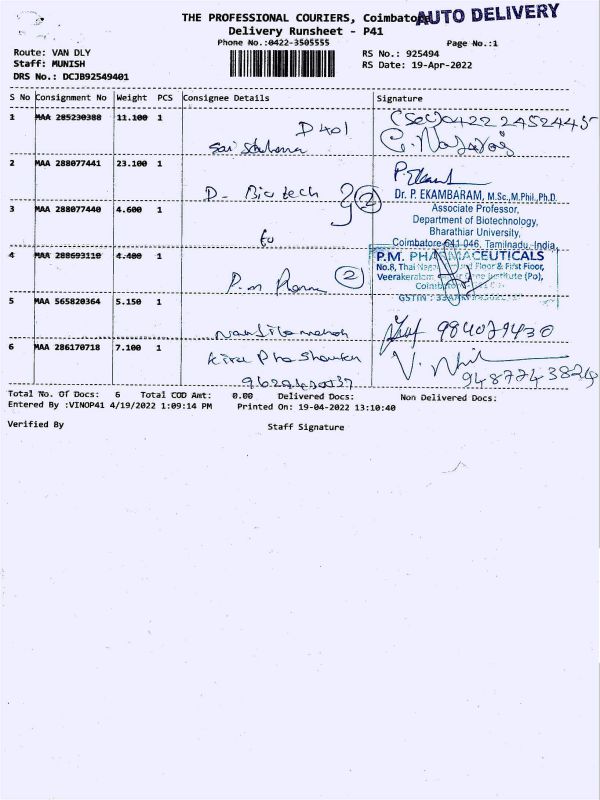 THE PROFESSIONAL COURIERS, Coimbatore
AUTO DELIVERY
Delivery Runsheet - P41
Phone No.:0422-3505555
Page No.:1
Route: VAN DLY
RS No.: 925494
Staff: MUNISH
RS Date: 19-Apr-2022
DRS No.: DCJB92549401
S No Consignment No Weight PCS Consignee Details Signature
1 MAA 285230388 11.100 1
D401
(Sec) 0422 2452445
2 MAA 288077441 23.100 1
P. Ekam
D. Biotech (2)
Dr. P. EKAMBARAM, M.Sc.,M.Phil.,Ph.D.
3 MAA 288077440 4.600 1
Associate Professor,
Department of Biotechnology,
Bharathiar University,
Coimbatore-641 046, Tamilnadu, India.
4 MAA 288693110 4.400 1
P.M. PHARMACEUTICALS
No.8, Thai Nagar, Floor & First Floor,
Veerakeralam (Po),
P.m Pharm (2)
5 MAA 565820364 5.150 1
6 MAA 286170718 7.100 1
Total No. Of Docs: 6 Total COD Amt: 0.00 Delivered Docs: Non Delivered Docs:
Entered By :VINOP41 4/19/2022 1:09:14 PM Printed On: 19-04-2022 13:10:40
Verified By Staff Signature